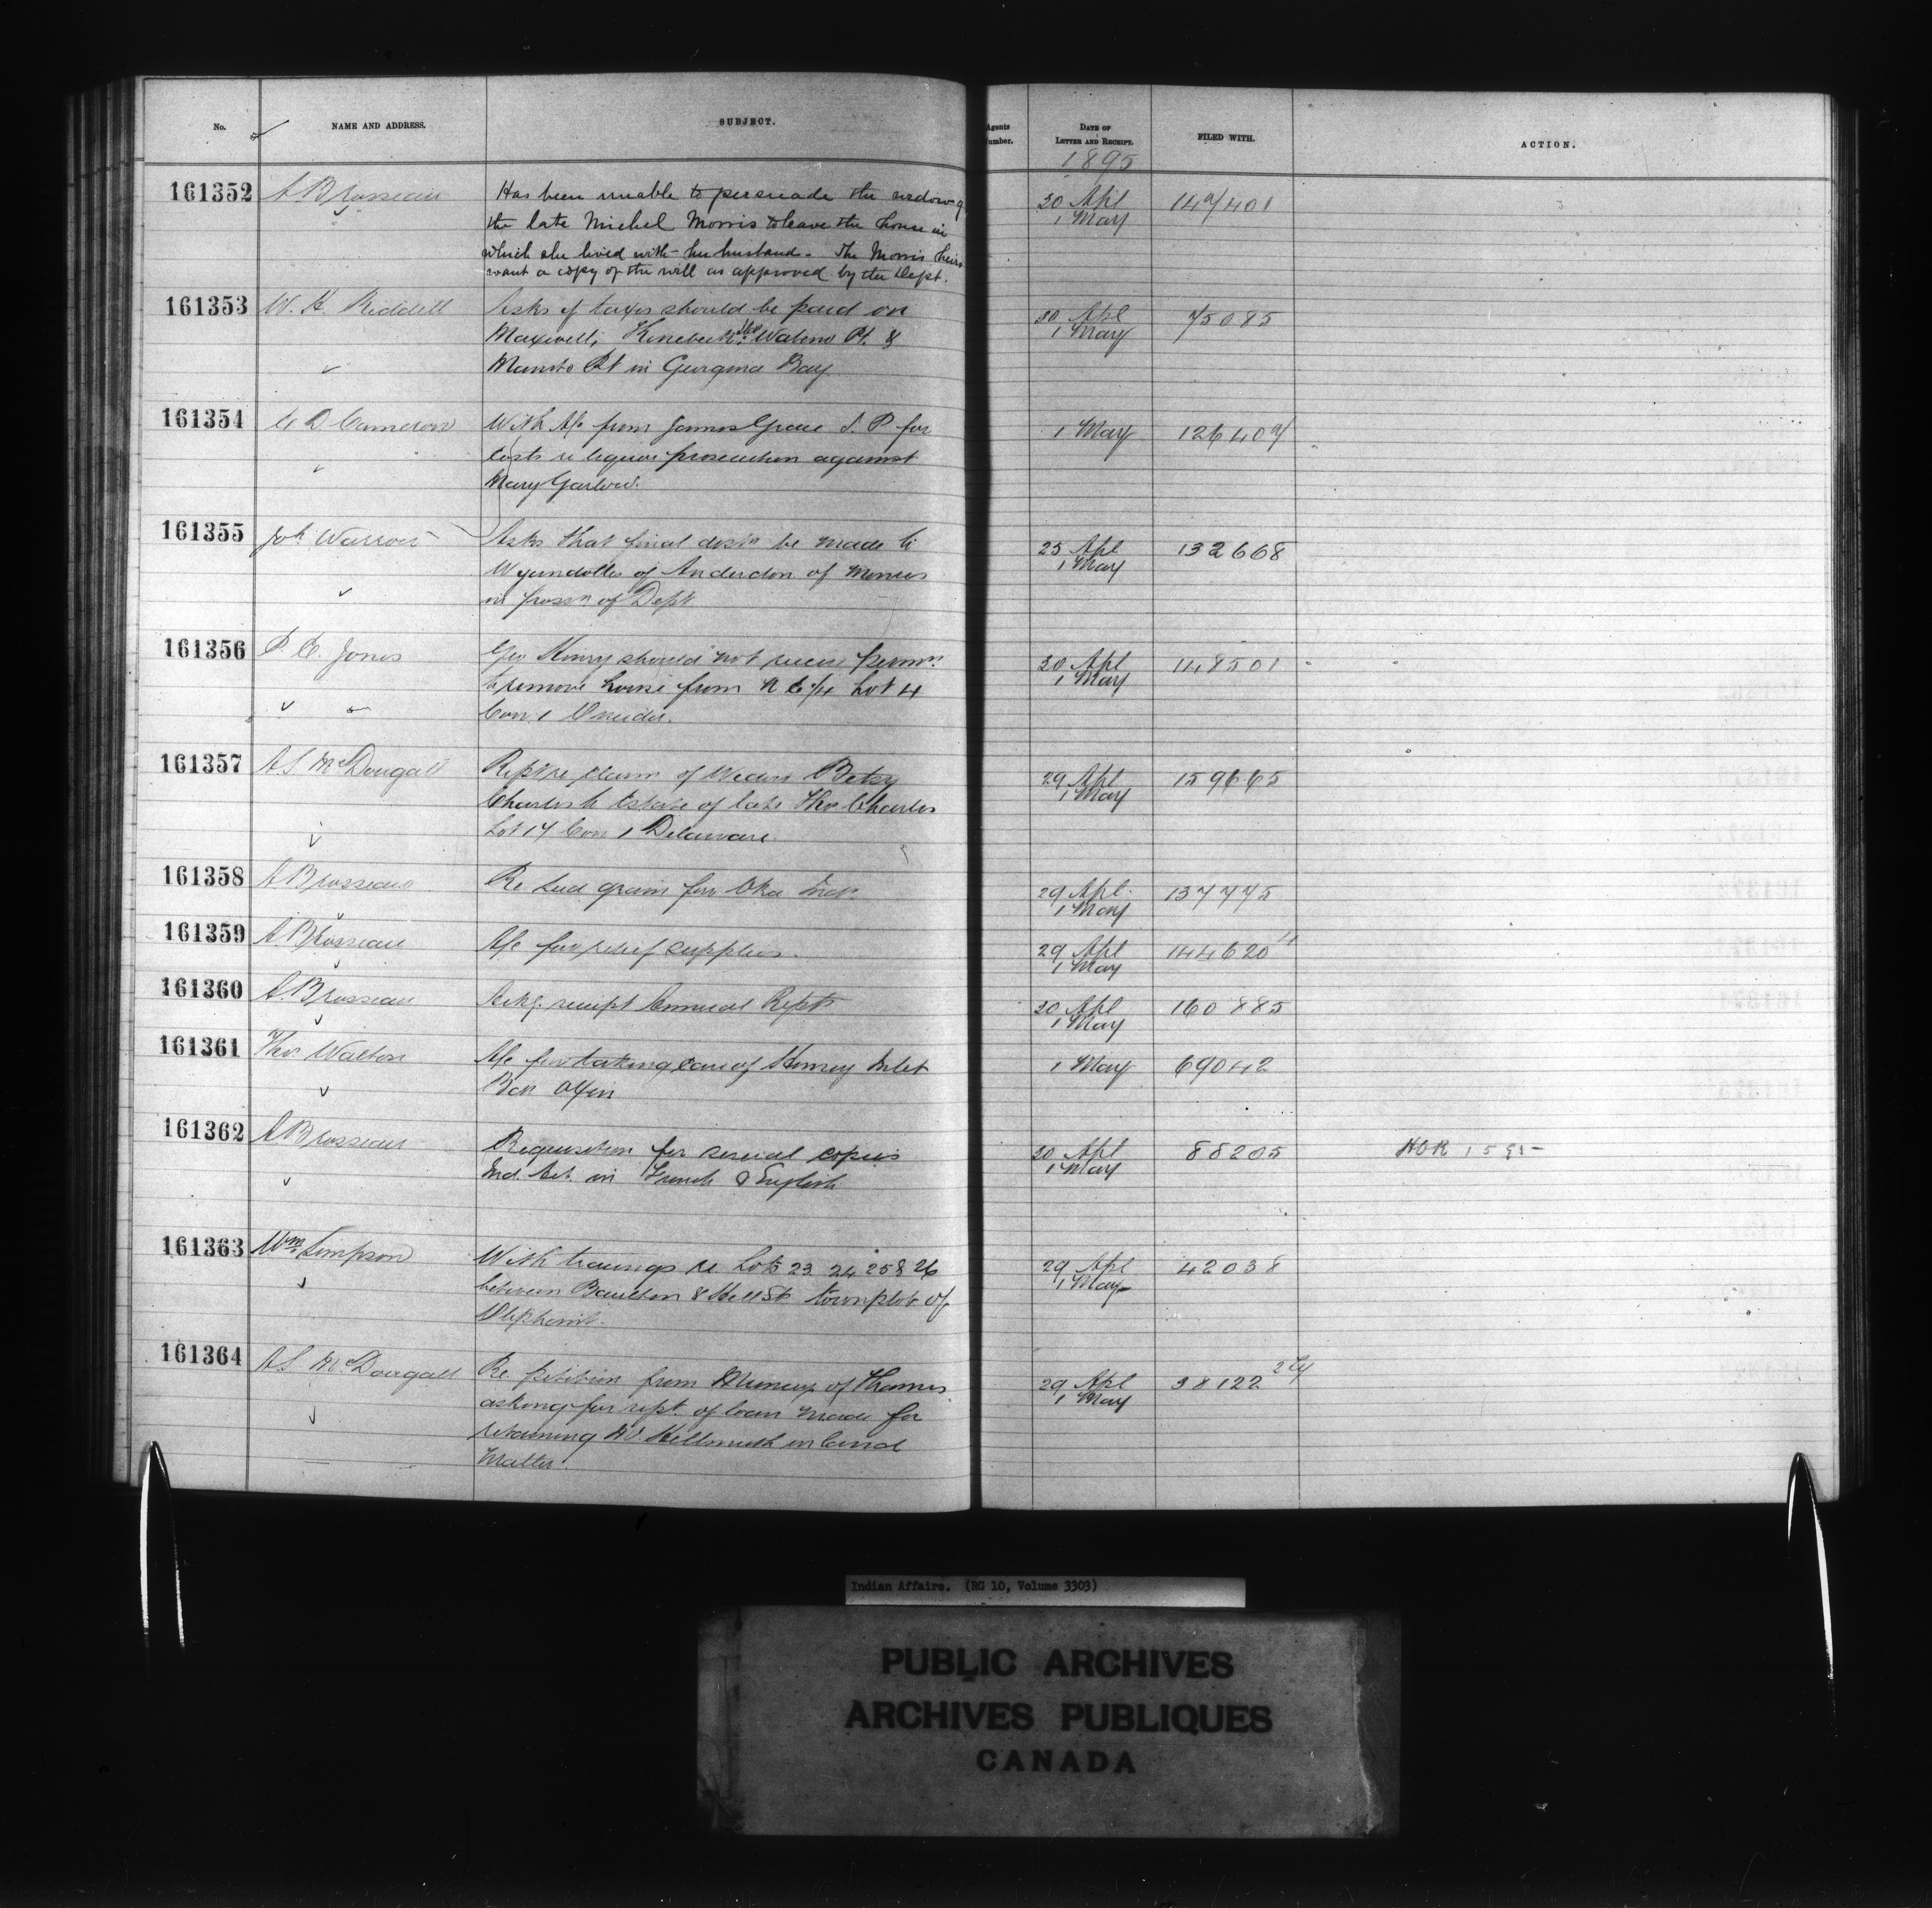 No. NAME AND ADDRESS. SUBJECT. Agents Number. DATE OF LETTER AND RECEIPT. FILED WITH. ACTION.
1895
161352 A Brosseau Has been unable to persuade the widow of 30 Apl 1 May
the late Michel Morris to leave the house in
which she lived with her husband. The Morris heirs
want a copy of the will as approved by the Dept.
161353 W. H. Riddell Asks if taxes should be paid on 30 Apl 1 May 75085
Maxwell, Wabino Pt. &
Manito Pt in Georgina Bay
161354 E D Cameron With A/c from James Grace J. P for 1 May
costs re liquor prosecution against
Mary Garlow.
161355 Jos. Warrow Asks that final distn be made to 25 Apl 1 May 132668
Wyandottes of Anderdon of moneys
in possn of Dept
161356 P. E. Jones Geo Henry should not receive permn. 30 Apl 1 May 148501
to remove house from N E 1/4 Lot 4
Con. 1 Oneida.
161357 A S McDougall Rept re claim of Widow Betsy 29 Apl 1 May 159665
Charles to Estate of late Thos Charles
Lot 17 Con 1 Delaware.
161358 A Brosseau Re seed grain for Oka Inds. 29 Apl. 1 May 137775
161359 A Brosseau A/c for relief supplies. 29 Apl 1 May 144620
161360 A. Brosseau Ackg. receipt Annual Repts 30 Apl 1 May 160885
161361 Thos Walton A/c for taking care of Henvey Inlet 1 May 69042
Bdn Oxen
161362 A Brosseau Requisition for several copies 30 Apl 1 May 88205
Ind. Act. in French & English
161363 Wm Simpson With tracings re. Lots 23 24 25 & 26 29 Apl 1 May 42038
between Boulton & Hill St. townplot of
Oliphant.
161364 A S McDougall Re. petition from Munceys of Thames 29 Apl 1 May 38122
asking for rept. of loan made for
retaining Mr. Hellmuth in land
Matter.
Indian Affairs. (RG 10, Volume 3303)
PUBLIC ARCHIVES
ARCHIVES PUBLIQUES
CANADA